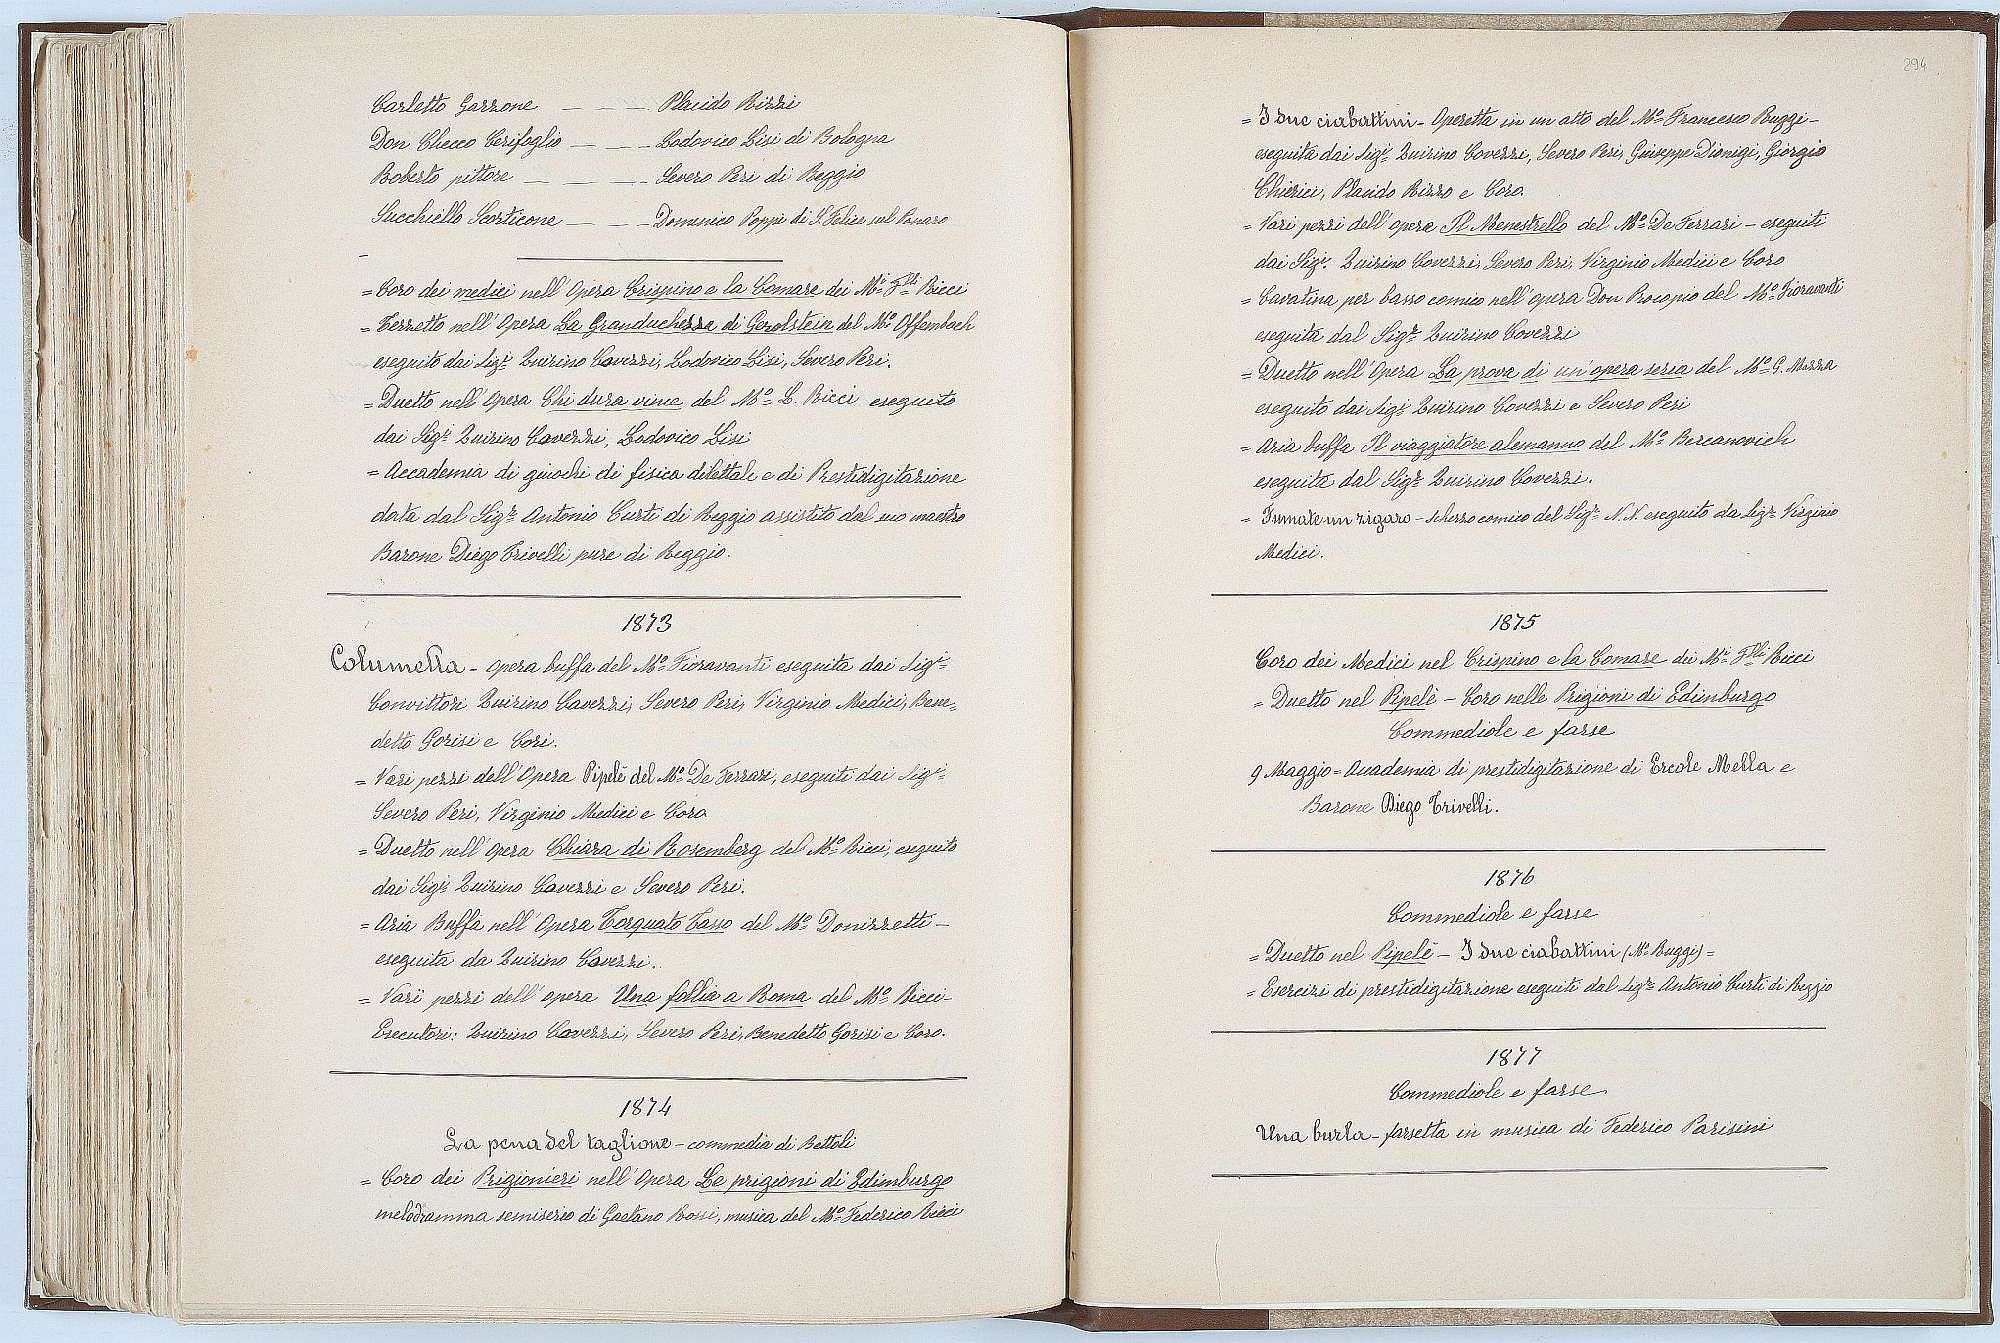 Carletto Garzone — — — Placido Rizzi
Don Checco Cerifoglio — — — Lodovico Lisi di Bologna
Roberto pittore — — — — Severo Peri di Reggio
Succhiello Scorticone — — — Domenico Poppi di S. Felice sul Panaro
= Coro dei medici nell'Opera Crispino e la Comare dei Mi. Flli Ricci
= Terzetto nell'Opera La Granduchessa di Gerolstein del Mo. Offembach
eseguito dai Sigri. Quirino Cavezzi, Lodovico Lisi, Severo Peri.
= Duetto nell'Opera Chi dura vince del Mo. L. Ricci eseguito
dai Sigri Quirino Cavezzi, Lodovico Lisi
= Accademia di giuochi di fisica dilettale e di Prestidigitazione
data dal Sigr. Antonio Curti di Reggio assistito dal suo maestro
Barone Diego Trivelli pure di Reggio.
1873
Columella - opera buffa del Mo. Fioravanti eseguita dai Sigi.
Convittori Quirino Cavezzi, Severo Peri, Virginio Medici, Bene-
detto Gorisi e Cori.
= Vari pezzi dell'Opera Pipelè del Mo. De Ferrari, eseguiti dai Sigi.
Severo Peri, Virginio Medici e Coro
= Duetto nell'Opera Chiara di Rosemberg del Mo. Ricci, eseguito
dai Sigri Quirino Cavezzi e Severo Peri.
= Aria Buffa nell'Opera Torquato Tasso del Mo. Donizzetti -
eseguita da Quirino Cavezzi.
= Varii pezzi dell'opera Una follia a Roma del Mo. Ricci -
Esecutori: Quirino Cavezzi, Severo Peri, Benedetto Gorisi e Coro.
1874
La pena del taglione - commedia di Bettoli
= Coro dei Prigionieri nell'Opera Le prigioni di Edimburgo
melodramma semiserio di Gaetano Rossi, musica del Mo. Federico Ricci
294
= I due ciabattini - Operetta in un atto del Mo. Francesco Ruggi -
eseguita dai Sigri. Quirino Covezzi, Severo Peri, Giuseppe Dionigi, Giorgio
Chierici, Placido Rizzo e Coro.
= Vari pezzi dell'opera Il Menestrello del Mo. De Ferrari - eseguiti
dai Sigi. Quirino Covezzi, Severo Peri, Virginio Medici e Coro
= Cavatina per basso comico nell'opera Don Procopio del Mo. Fioravanti
eseguita dal Sigr. Quirino Covezzi
= Duetto nell'Opera La prova di un'opera seria del Mo. G. Mazza
eseguito dai Sigri Quirino Covezzi e Severo Peri
= Aria buffa Il viaggiatore alemanno del Mo. Bercanovich
eseguita dal Sigr. Quirino Covezzi.
= Fumate un zigaro - scherzo comico del Sigr. N.N. eseguito da Sigr. Virginio
Medici.
1875
Coro dei Medici nel Crispino e la Comare dei Mi. Flli Ricci
= Duetto nel Pipelè - Coro nelle Prigioni di Edimburgo
Commediole e farse
9 Maggio = Accademia di prestidigitazione di Ercole Mella e
Barone Diego Trivelli.
1876
Commediole e farse
= Duetto nel Pipelè - I due ciabattini (Mo. Ruggi) =
= Esercizi di prestidigitazione eseguiti dal Sigr. Antonio Curti di Reggio
1877
Commediole e farse
Una burla - farsetta in musica di Federico Parisini